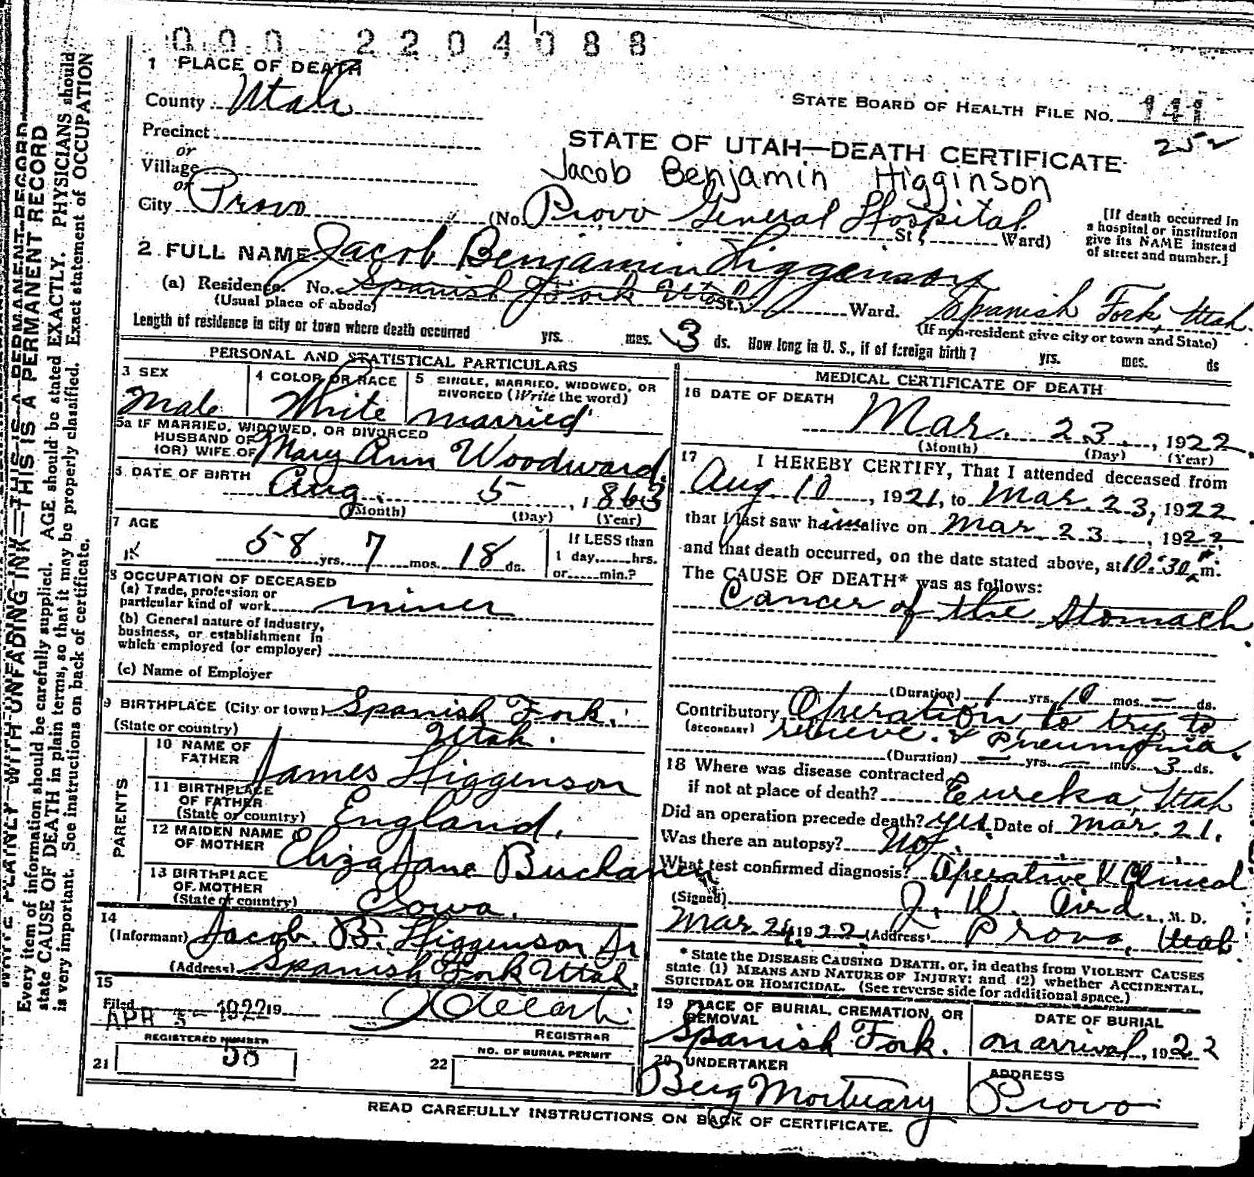 000 2204088
1 PLACE OF DEATH
County Utah
STATE BOARD OF HEALTH FILE NO. 141
252
Precinct
or
Village
or
City Provo
STATE OF UTAH—DEATH CERTIFICATE
Jacob Benjamin Higginson
(No. Provo General Hospital St., Ward)
[If death occurred in a hospital or institution give its NAME instead of street and number.]
2 FULL NAME Jacob Benjamin Higgenson
(a) Residence. No. Spanish Fork Utah St., Ward. Spanish Fork, Utah.
(Usual place of abode) (If non-resident give city or town and State)
Length of residence in city or town where death occurred yrs. mos. 3 ds. How long in U. S., if of foreign birth? yrs. mos. ds
PERSONAL AND STATISTICAL PARTICULARS
3 SEX Male
4 COLOR OR RACE White
5 SINGLE, MARRIED, WIDOWED, OR DIVORCED (Write the word) married
5a IF MARRIED, WIDOWED, OR DIVORCED
HUSBAND OF
(OR) WIFE OF Mary Ann Woodward
6 DATE OF BIRTH Aug. 5, 1863
(Month) (Day) (Year)
7 AGE 58 yrs. 7 mos. 18 ds.
If LESS than 1 day, hrs. or min.?
8 OCCUPATION OF DECEASED
(a) Trade, profession or particular kind of work miner
(b) General nature of industry, business, or establishment in which employed (or employer)
(c) Name of Employer
9 BIRTHPLACE (City or town) Spanish Fork,
(State or country) Utah.
PARENTS
10 NAME OF FATHER James Higgenson
11 BIRTHPLACE OF FATHER (State or country) England.
12 MAIDEN NAME OF MOTHER Eliza Jane Buchanen
13 BIRTHPLACE OF MOTHER (State or country) Iowa.
14
(Informant) Jacob B. Higgenson Jr
(Address) Spanish Fork Utah
15
Filed APR 5 - 1922 19
REGISTRAR
REGISTERED NUMBER
21 58
22 NO. OF BURIAL PERMIT
MEDICAL CERTIFICATE OF DEATH
16 DATE OF DEATH Mar. 23, 1922
(Month) (Day) (Year)
17 I HEREBY CERTIFY, That I attended deceased from
Aug 10, 1921, to Mar. 23, 1922
that I last saw him alive on Mar 23, 1922
and that death occurred, on the date stated above, at 10:30 m.
The CAUSE OF DEATH* was as follows:
Cancer of the Stomach.
(Duration) 1 yrs. 10 mos. — ds.
Contributory Operation to try to
(SECONDARY) relieve. & Pneumonia.
(Duration) — yrs. — mos. 3 ds.
18 Where was disease contracted
if not at place of death? Eureka, Utah
Did an operation precede death? yes. Date of Mar. 21.
Was there an autopsy? No.
What test confirmed diagnosis? Operative & Clinical
(Signed) J. W. Aird, M. D.
Mar 24, 1922. (Address) Provo, Utah
* State the DISEASE CAUSING DEATH, or, in deaths from VIOLENT CAUSES
state (1) MEANS AND NATURE OF INJURY; and (2) whether ACCIDENTAL,
SUICIDAL OR HOMICIDAL. (See reverse side for additional space.)
19 PLACE OF BURIAL, CREMATION, OR REMOVAL
Spanish Fork.
DATE OF BURIAL
on arrival, 1922
20 UNDERTAKER
Berg Mortuary
ADDRESS
Provo
READ CAREFULLY INSTRUCTIONS ON BACK OF CERTIFICATE.
WRITE PLAINLY—WITH UNFADING INK—THIS IS A PERMANENT RECORD
Every item of information should be carefully supplied. AGE should be stated EXACTLY. PHYSICIANS should
state CAUSE OF DEATH in plain terms, so that it may be properly classified. Exact statement of OCCUPATION
is very important. See instructions on back of certificate.